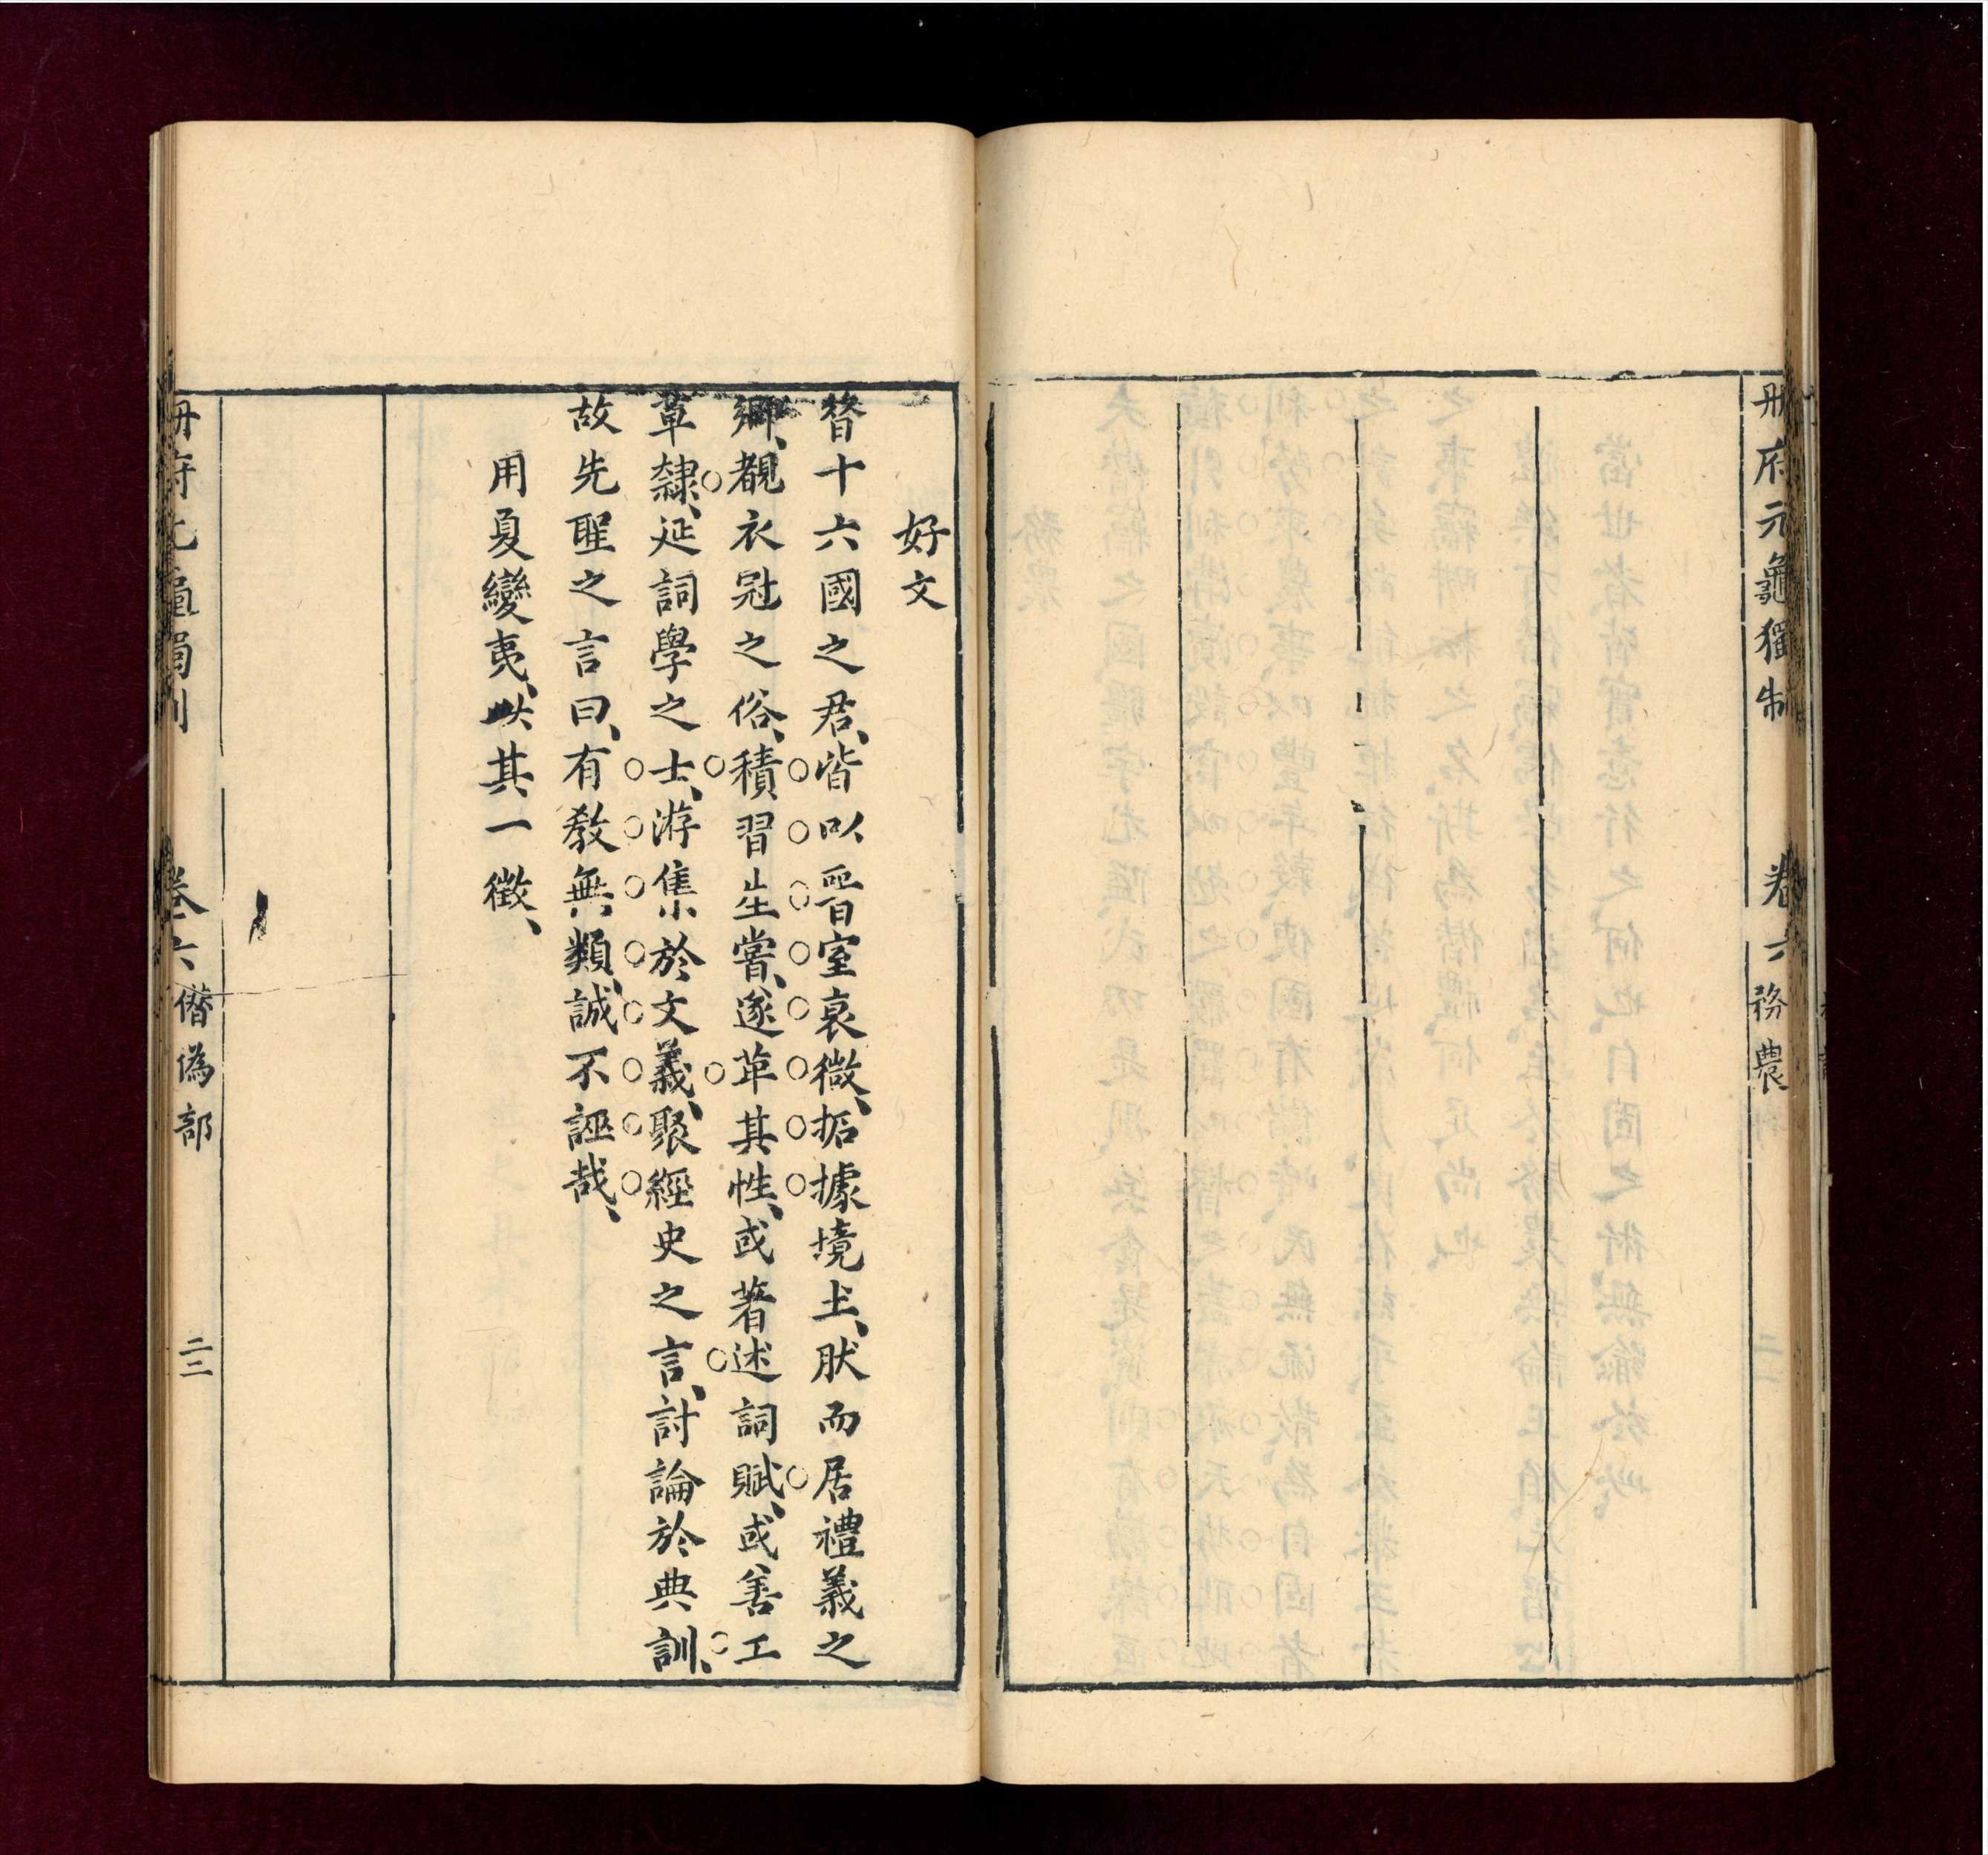 冊府元龜獨制 卷六 務農
好文
昝十六國之君、皆以晉室衰微、据據境土、肰而居禮義之
鄉、覩衣冠之俗、積習生嘗、遂革其性、或著述詞賦、或善工
草隸、延詞學之士、游集於文義、聚經史之言、討論於典訓、
故先聖之言曰、有敎無類、誠不誣哉、
用夏變夷、此其一徵、
冊府元龜獨制 卷六 僭偽部 二三